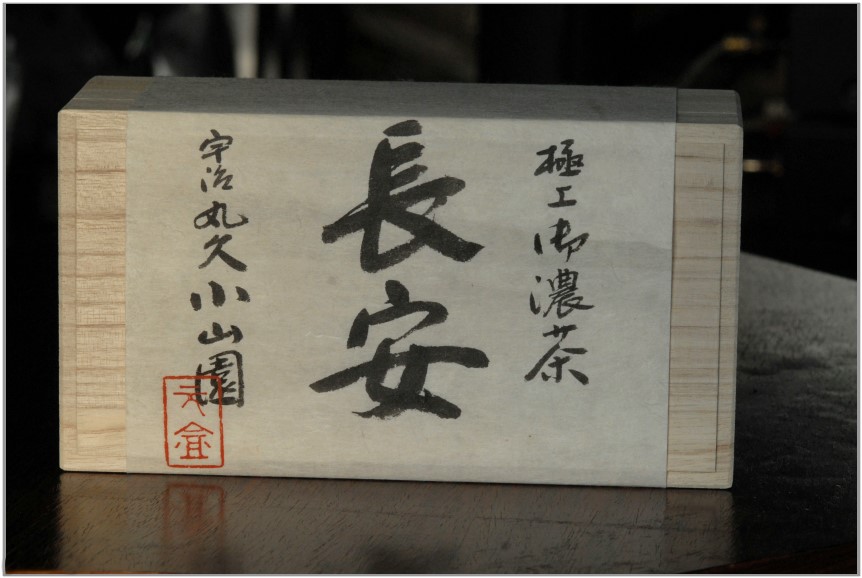 極上御濃茶
長安
宇治丸久小山園